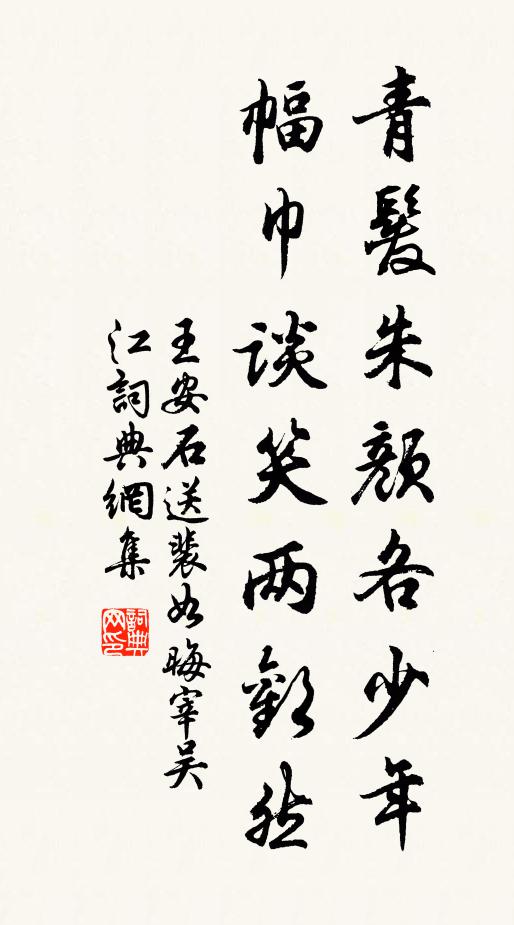 青髮朱顔各少年
幅巾談笑两歡然
王安石送裴如晦宰吴
江詞典網集
詞典网印